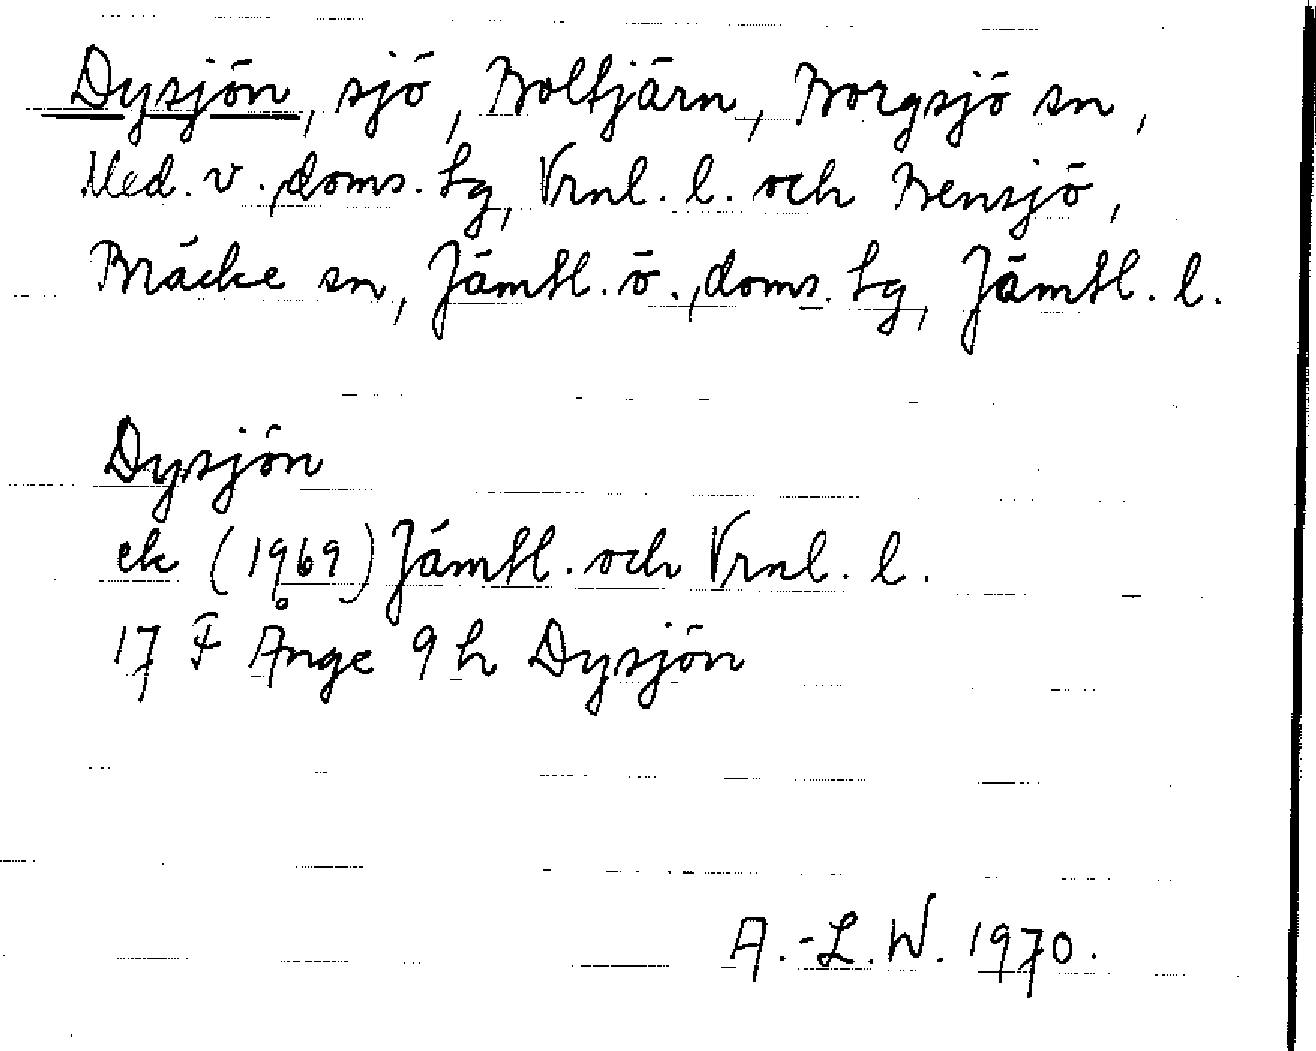 Dysjön, sjö, Boltjärn, Borgsjö sn,
Med. v. doms. tg, Vrnl. l. och Bensjö,
Bräcke sn, Jämtl. ö. doms. tg, Jämtl. l.
Dysjön
ek (1969) Jämtl. och Vrnl. l.
17 F Ånge 9 h Dysjön
A.-L. W. 1970.